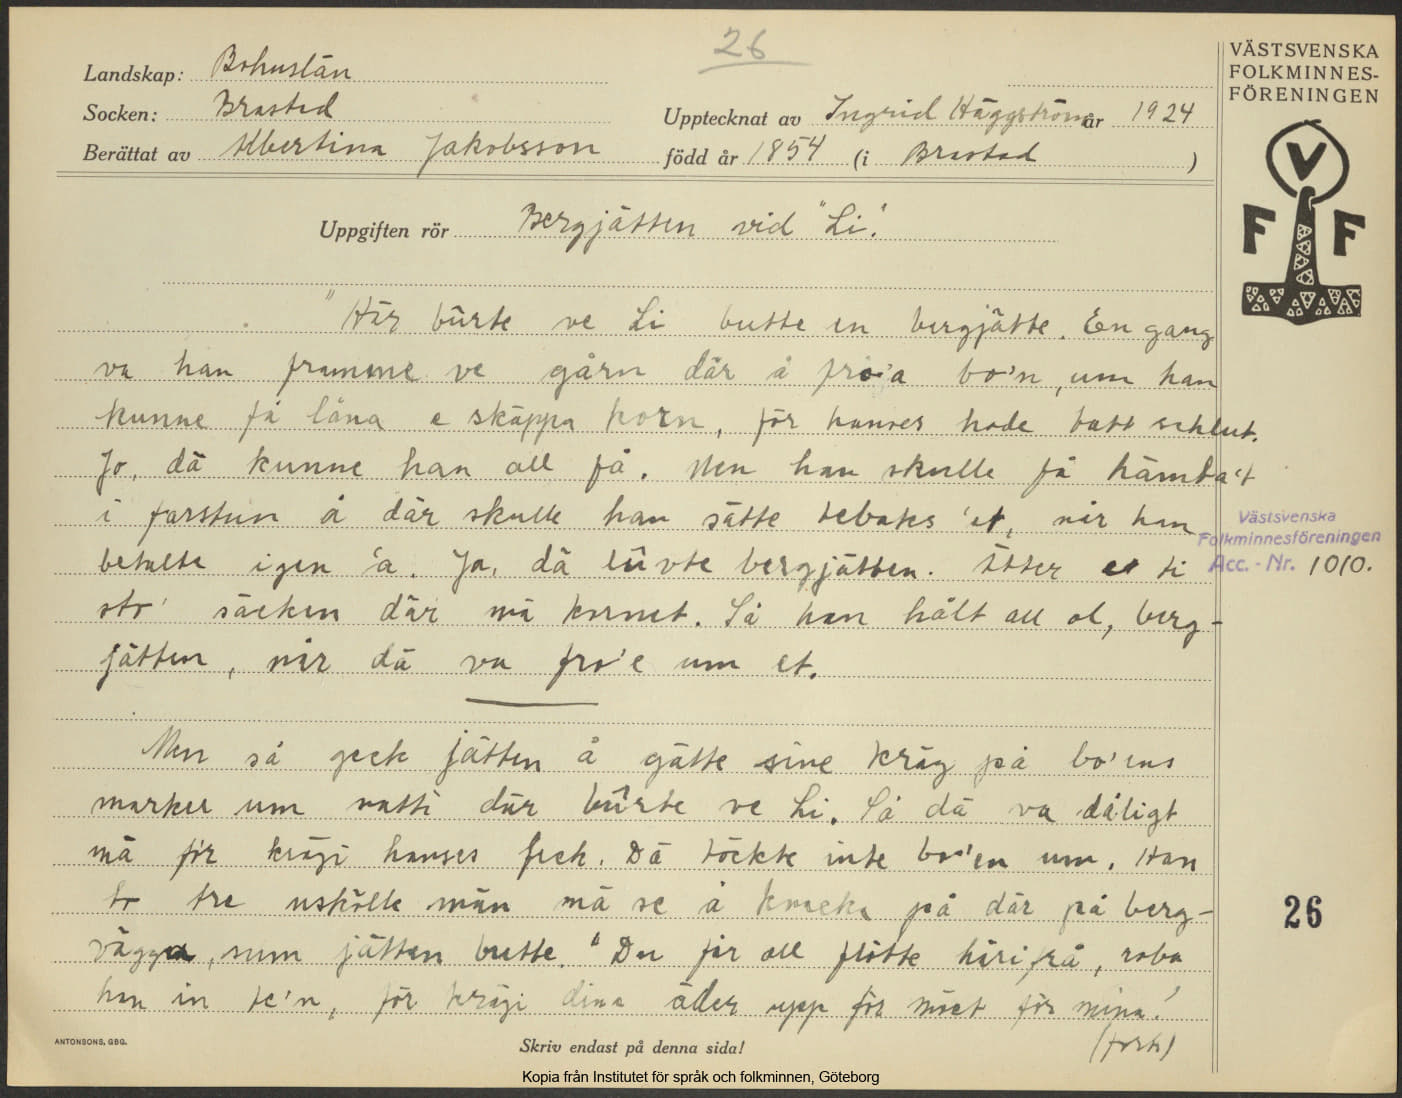 26
Landskap: Bohuslän
Socken: Brastad
Upptecknat av Ingrid Häggström år 1924
Berättat av Albertina Jakobsson född år 1854 (i Brastad)
Uppgiften rör Bergjätten vid "Li".
"Här bûrte ve Li butte en bergjätte. En gang
va han framme ve gårn där å fro'a bo'n, um han
kunne få låna e skäppa korn, för hannes hade tatt schlut.
Jo, dä kunne han all få. Men han skulle få hämta't
i farstun å där skulle han sätte tebaks 'et, när han
betalte igen 'a. Ja, dä lûvte bergjätten. Ätter et ti
sto' säcken där mä kornet. Så han hålt all ol, berg-
jätten, när dä va fro'e um et.
Men så geck jätten å gätte sine kräg på bo'ens
marker um natti där bûrte ve Li. Så dä va dåligt
mä för krägi hanses feck. Dä töckte inte bo'en um. Han
to tre uskölle män mä se å knacka på där på berg-
vägga, sum jätten butte. "Du får all flötte härifrå, roba
han in te'n, för krägi dina äder upp för möet för mina!
(forts)
Skriv endast på denna sida!
ANTONSONS, GBG.
Kopia från Institutet för språk och folkminnen, Göteborg
VÄSTSVENSKA
FOLKMINNES-
FÖRENINGEN
V
F F
Västsvenska
Folkminnesföreningen
Acc.-Nr. 1010.
26